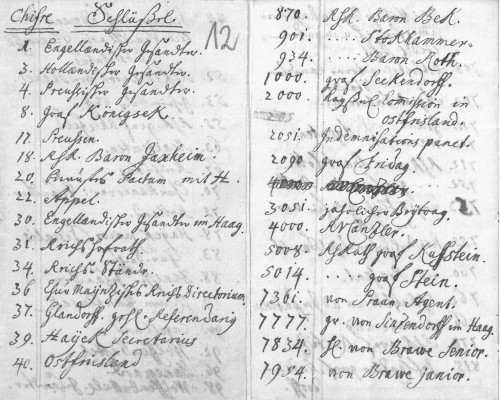 Chifre Schlüßel
12
1. Engelländischer Gesandter.
3. Holländischer Gesandter.
4. Preussischer Gesandter.
8. Graf Königsek.
17. Preussen.
18. RhR. Baron
20. Factum mit H.
22. Appel.
30. Engelländischer Gesandter im Haag.
31. Reichshofrath.
34. Reichs Ständt.
36 Chur Maynzisches Reichs Directorium.
37. Glandorff, geh. Referendarig
39. Hayek Secretarius
40. Ostfrisland
870. RhR. Baron Bek.
901. ..... Stokhammer.
934. ..... Baron Roth.
1000. graf Seckendorff.
2000. Kayserl. Comission in
Ostfrisland.
2051. Indemnisations punct.
2090 graf Fridag.
3051. jährlicher Beytrag.
4000. RVCantzler.
5008. RhRath graf Kuffstein.
5014. .... graf Stein.
7361. von Praun, Agent.
7777. gr. von Sinzendorff im Haag.
7834. H. von Brawe Senior.
7954. von Brawe Junior.